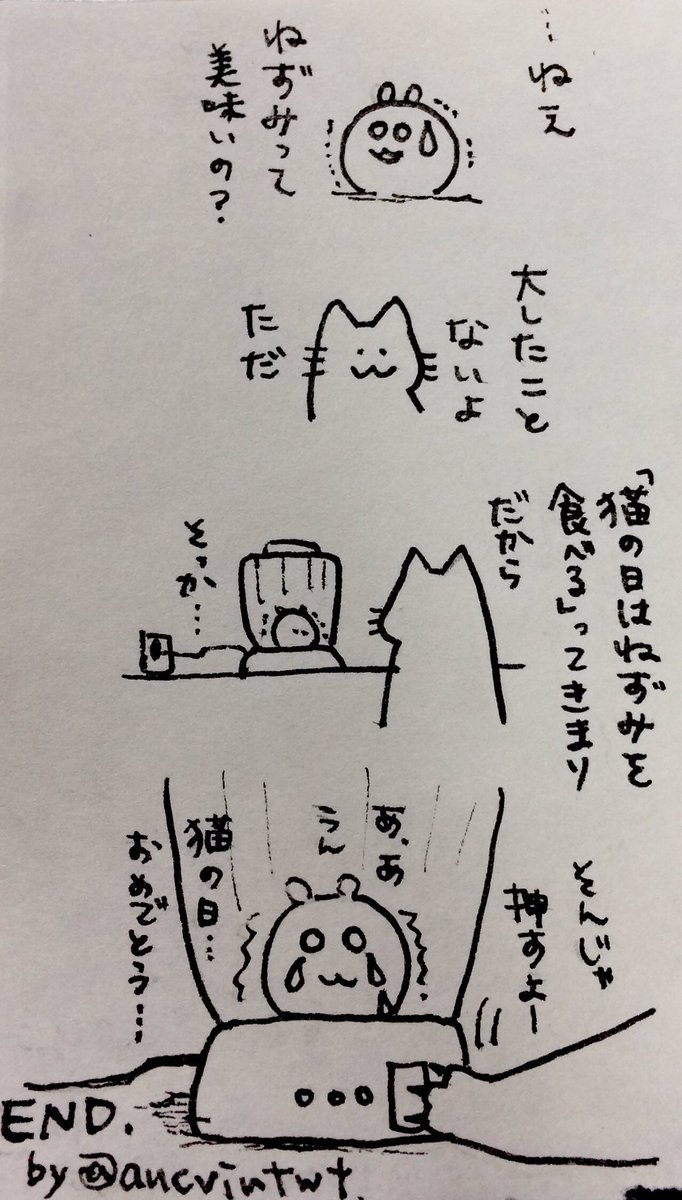 …ねえ
ねずみって
美味いの?
大したこと
ないよ
ただ
「猫の日はねずみを
食べる」ってきまり
だから
そっか…
そんじゃ
押すよー
あ、あ
うん
猫の日…
おめでとう…
END.
by @ancvintwt.